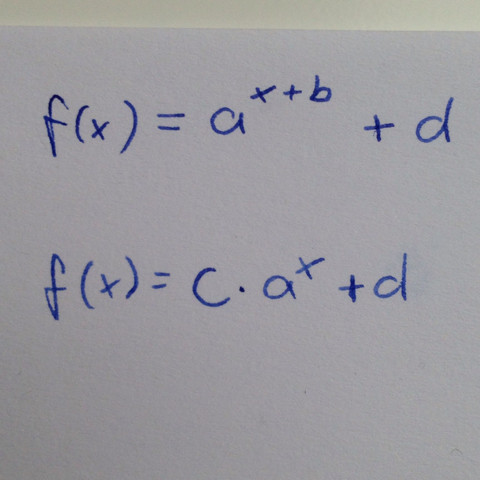 f(x) = a^{x+b} + d
f(x) = c · a^x + d